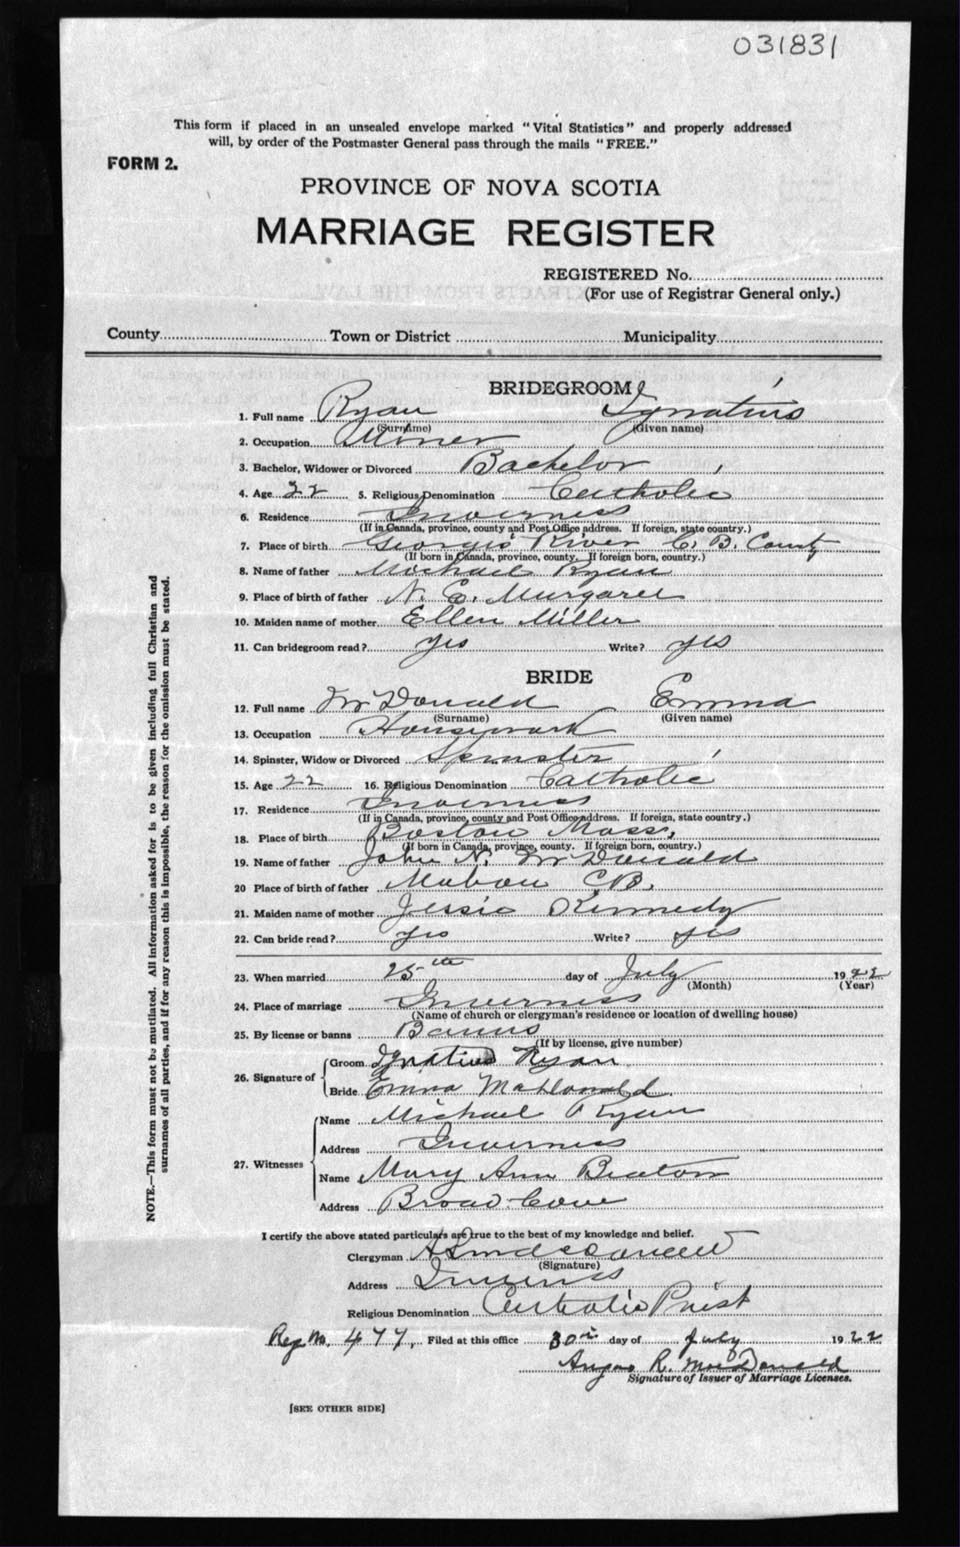 031831
This form if placed in an unsealed envelope marked "Vital Statistics" and properly addressed
will, by order of the Postmaster General pass through the mails "FREE."
FORM 2.
PROVINCE OF NOVA SCOTIA
MARRIAGE REGISTER
REGISTERED No.
(For use of Registrar General only.)
County Town or District Municipality
BRIDEGROOM
1. Full name Ryan Ignatius
(Surname) (Given name)
2. Occupation Miner
3. Bachelor, Widower or Divorced Bachelor
4. Age 22 5. Religious Denomination Catholic
6. Residence Inverness
(If in Canada, province, county and Post Office address. If foreign, state country.)
7. Place of birth Georges River C. B. County
(If born in Canada, province, county. If foreign born, country.)
8. Name of father Michael Ryan
9. Place of birth of father N. E. Margaree
10. Maiden name of mother Ellen Miller
11. Can bridegroom read? yes Write? yes
BRIDE
12. Full name McDonald Emma
(Surname) (Given name)
13. Occupation Housework
14. Spinster, Widow or Divorced Spinster
15. Age 22 16. Religious Denomination Catholic
17. Residence Inverness
(If in Canada, province, county and Post Office address. If foreign, state country.)
18. Place of birth Boston Mass,
(If born in Canada, province, county. If foreign born, country.)
19. Name of father John N. McDonald
20 Place of birth of father Mabou C.B.
21. Maiden name of mother Jessie Kennedy
22. Can bride read? yes Write? yes
23. When married 25th day of July 1922
(Month) (Year)
24. Place of marriage Inverness
(Name of church or clergyman's residence or location of dwelling house)
25. By license or banns Banns
(If by license, give number)
26. Signature of Groom Ignatius Ryan
Bride Emma MacDonald
27. Witnesses Name Michael Ryan
Address Inverness
Name Mary Ann Beaton
Address Broad Cove
I certify the above stated particulars are true to the best of my knowledge and belief.
Clergyman
(Signature)
Address Inverness
Religious Denomination Catholic Priest
Reg No. 477. Filed at this office 30th day of July 1922
Angus R. MacDonald
Signature of Issuer of Marriage Licenses.
[SEE OTHER SIDE]
NOTE.—This form must not be mutilated. All information asked for is to be given including full Christian and
surnames of all parties, and if for any reason this is impossible, the reason for the omission must be stated.